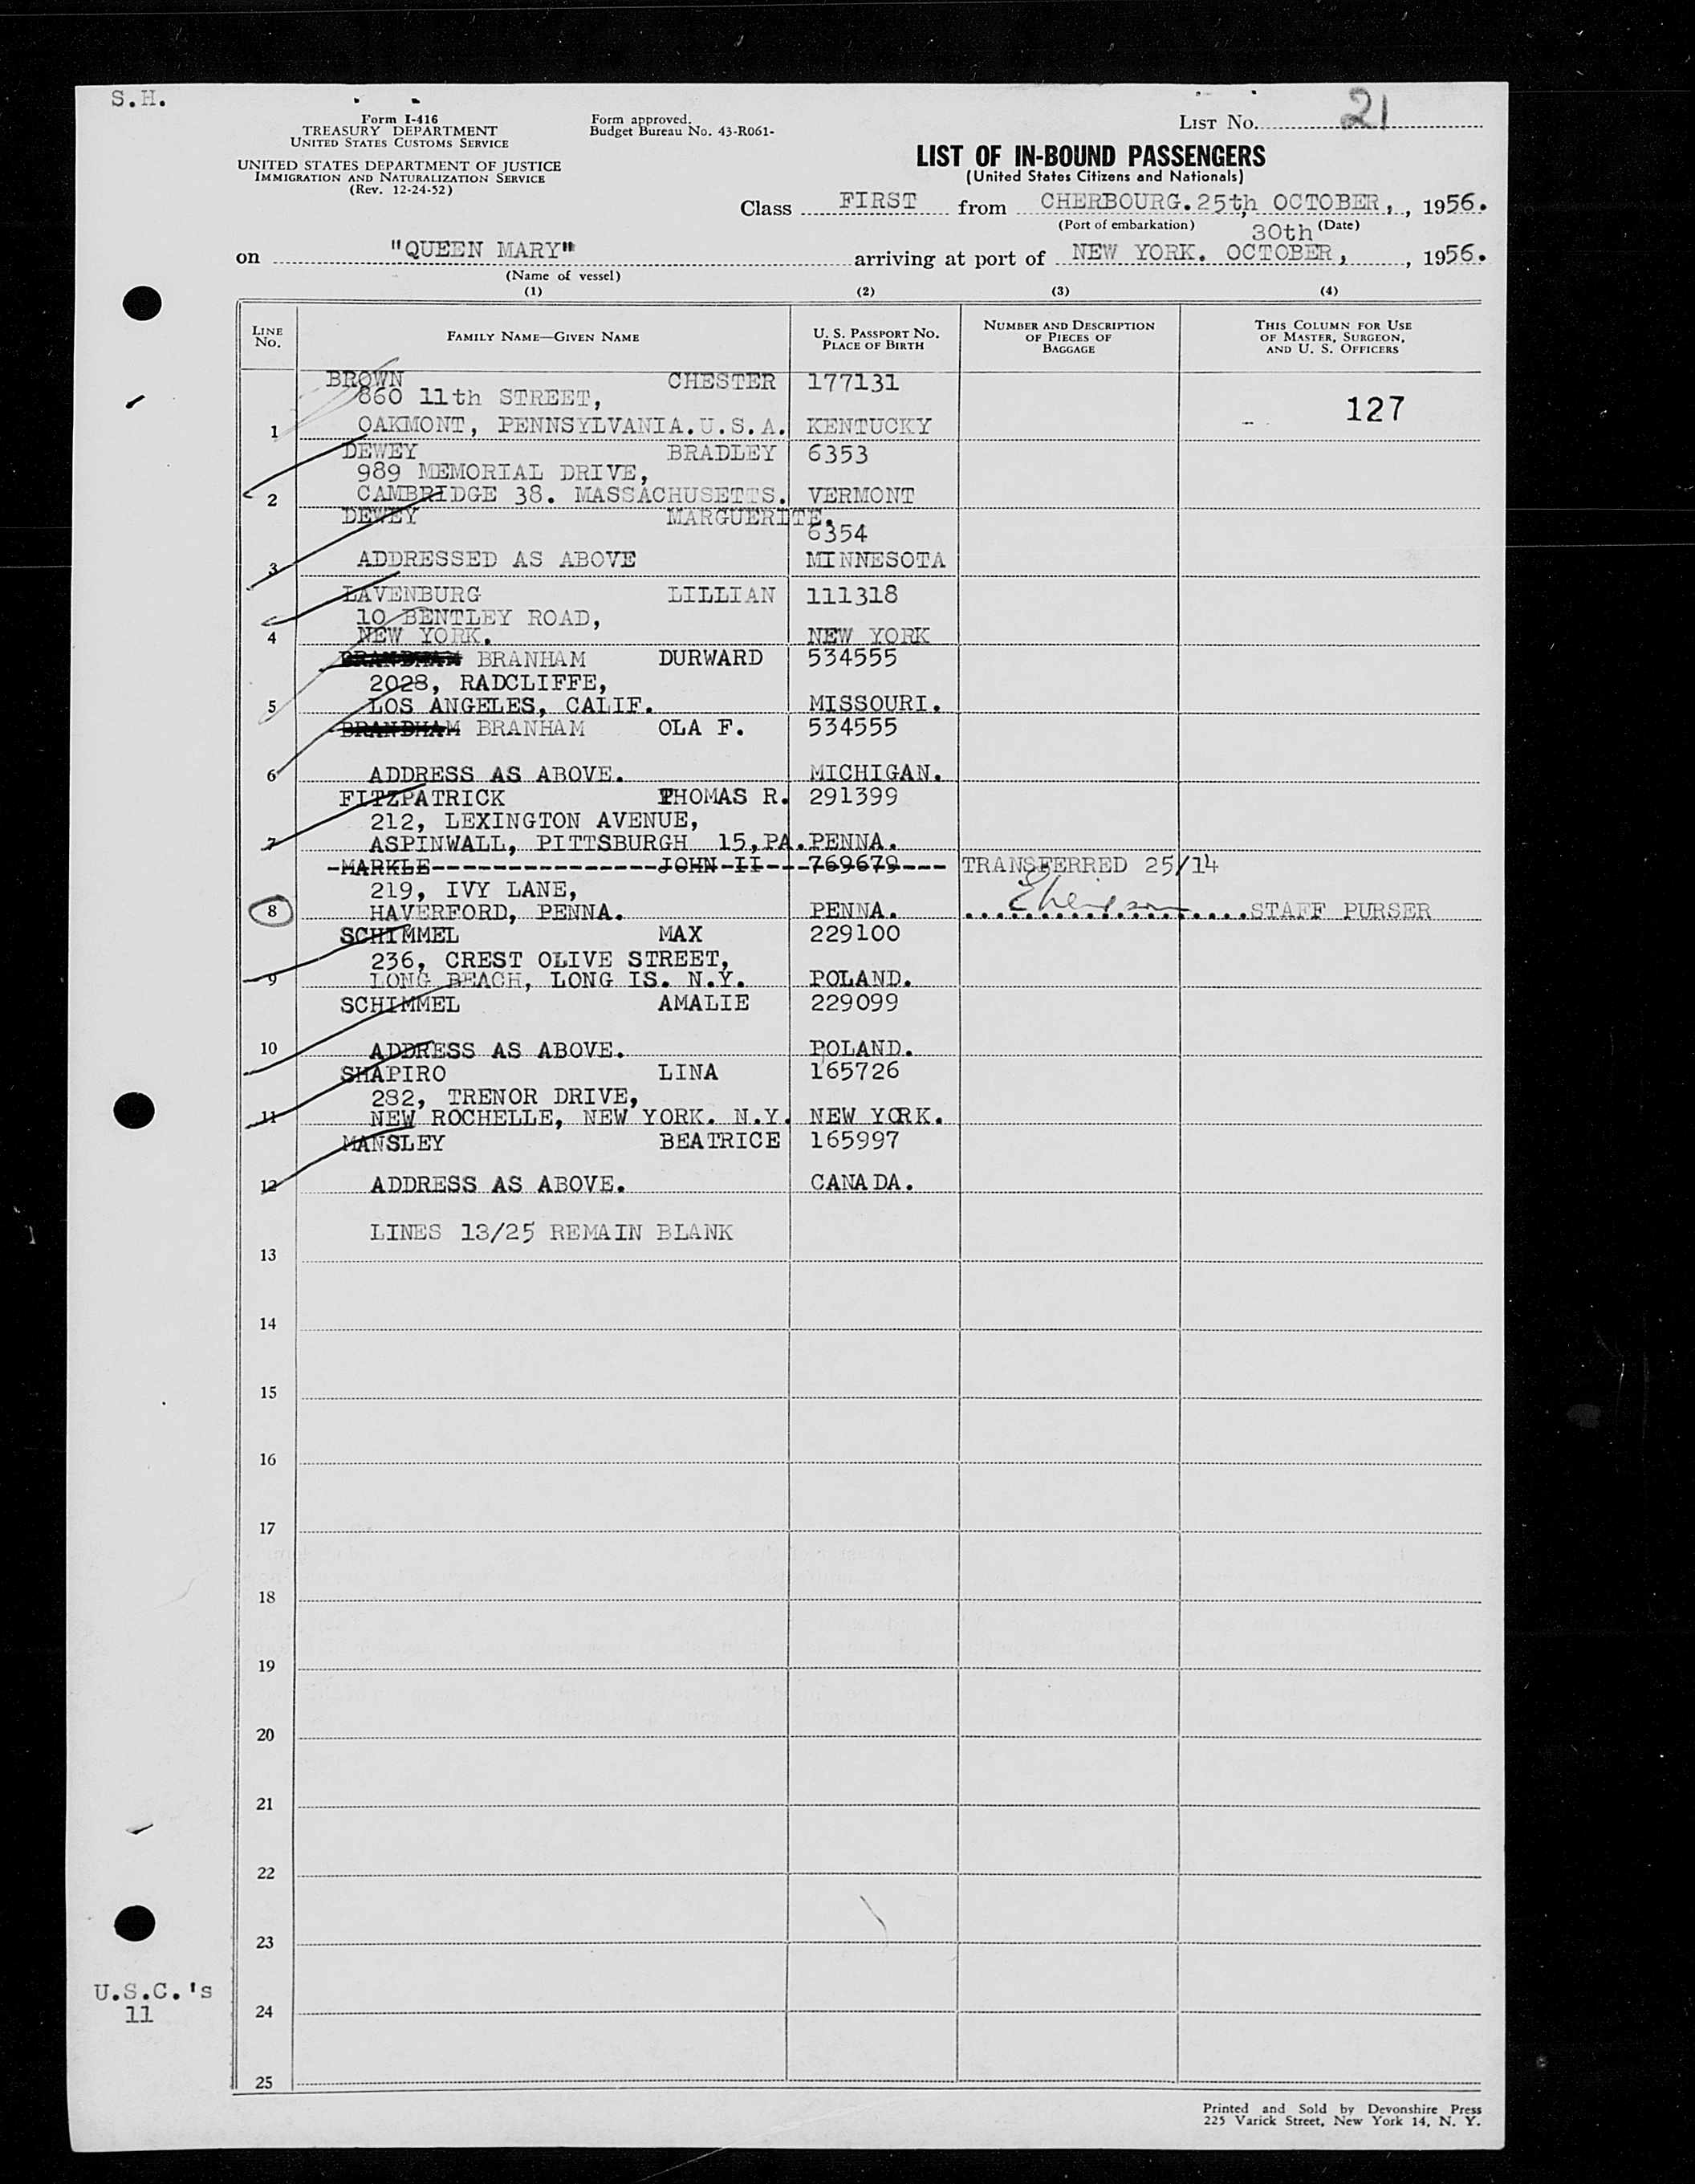 S.H.
Form I-416
TREASURY DEPARTMENT
UNITED STATES CUSTOMS SERVICE
UNITED STATES DEPARTMENT OF JUSTICE
IMMIGRATION AND NATURALIZATION SERVICE
(Rev. 12-24-52)
Form approved.
Budget Bureau No. 43-R061-
LIST No. 21
LIST OF IN-BOUND PASSENGERS
(United States Citizens and Nationals)
Class FIRST from CHERBOURG. 25th, OCTOBER, , 1956.
(Port of embarkation) (Date)
on "QUEEN MARY" arriving at port of NEW YORK. 30th OCTOBER, , 1956.
(Name of vessel)
(1) (2) (3) (4)
LINE No. FAMILY NAME—GIVEN NAME U. S. PASSPORT NO. PLACE OF BIRTH NUMBER AND DESCRIPTION OF PIECES OF BAGGAGE THIS COLUMN FOR USE OF MASTER, SURGEON, AND U. S. OFFICERS
BROWN CHESTER 177131
860 11th STREET, 127
1 OAKMONT, PENNSYLVANIA. U.S.A. KENTUCKY
DEWEY BRADLEY 6353
989 MEMORIAL DRIVE,
2 CAMBRIDGE 38. MASSACHUSETTS. VERMONT
DEWEY MARGUERITE.
6354
3 ADDRESSED AS ABOVE MINNESOTA
LAVENBURG LILLIAN 111318
10 BENTLEY ROAD,
4 NEW YORK. NEW YORK
BRANDHAM BRANHAM DURWARD 534555
2028, RADCLIFFE,
5 LOS ANGELES, CALIF. MISSOURI.
BRANDHAM BRANHAM OLA F. 534555
6 ADDRESS AS ABOVE. MICHIGAN.
FITZPATRICK THOMAS R. 291399
212, LEXINGTON AVENUE,
7 ASPINWALL, PITTSBURGH 15, PA. PENNA.
-MARKLE-----------------JOHN-II---769679--- TRANSFERRED 25/14
219, IVY LANE,
8 HAVERFORD, PENNA. PENNA. STAFF PURSER
SCHIMMEL MAX 229100
236, CREST OLIVE STREET,
9 LONG BEACH, LONG IS. N.Y. POLAND.
SCHIMMEL AMALIE 229099
10 ADDRESS AS ABOVE. POLAND.
SHAPIRO LINA 165726
282, TRENOR DRIVE,
11 NEW ROCHELLE, NEW YORK. N.Y. NEW YORK.
MANSLEY BEATRICE 165997
12 ADDRESS AS ABOVE. CANADA.
LINES 13/25 REMAIN BLANK
13
14
15
16
17
18
19
20
21
22
23
U.S.C.'s
11
24
25
Printed and Sold by Devonshire Press
225 Varick Street, New York 14, N. Y.